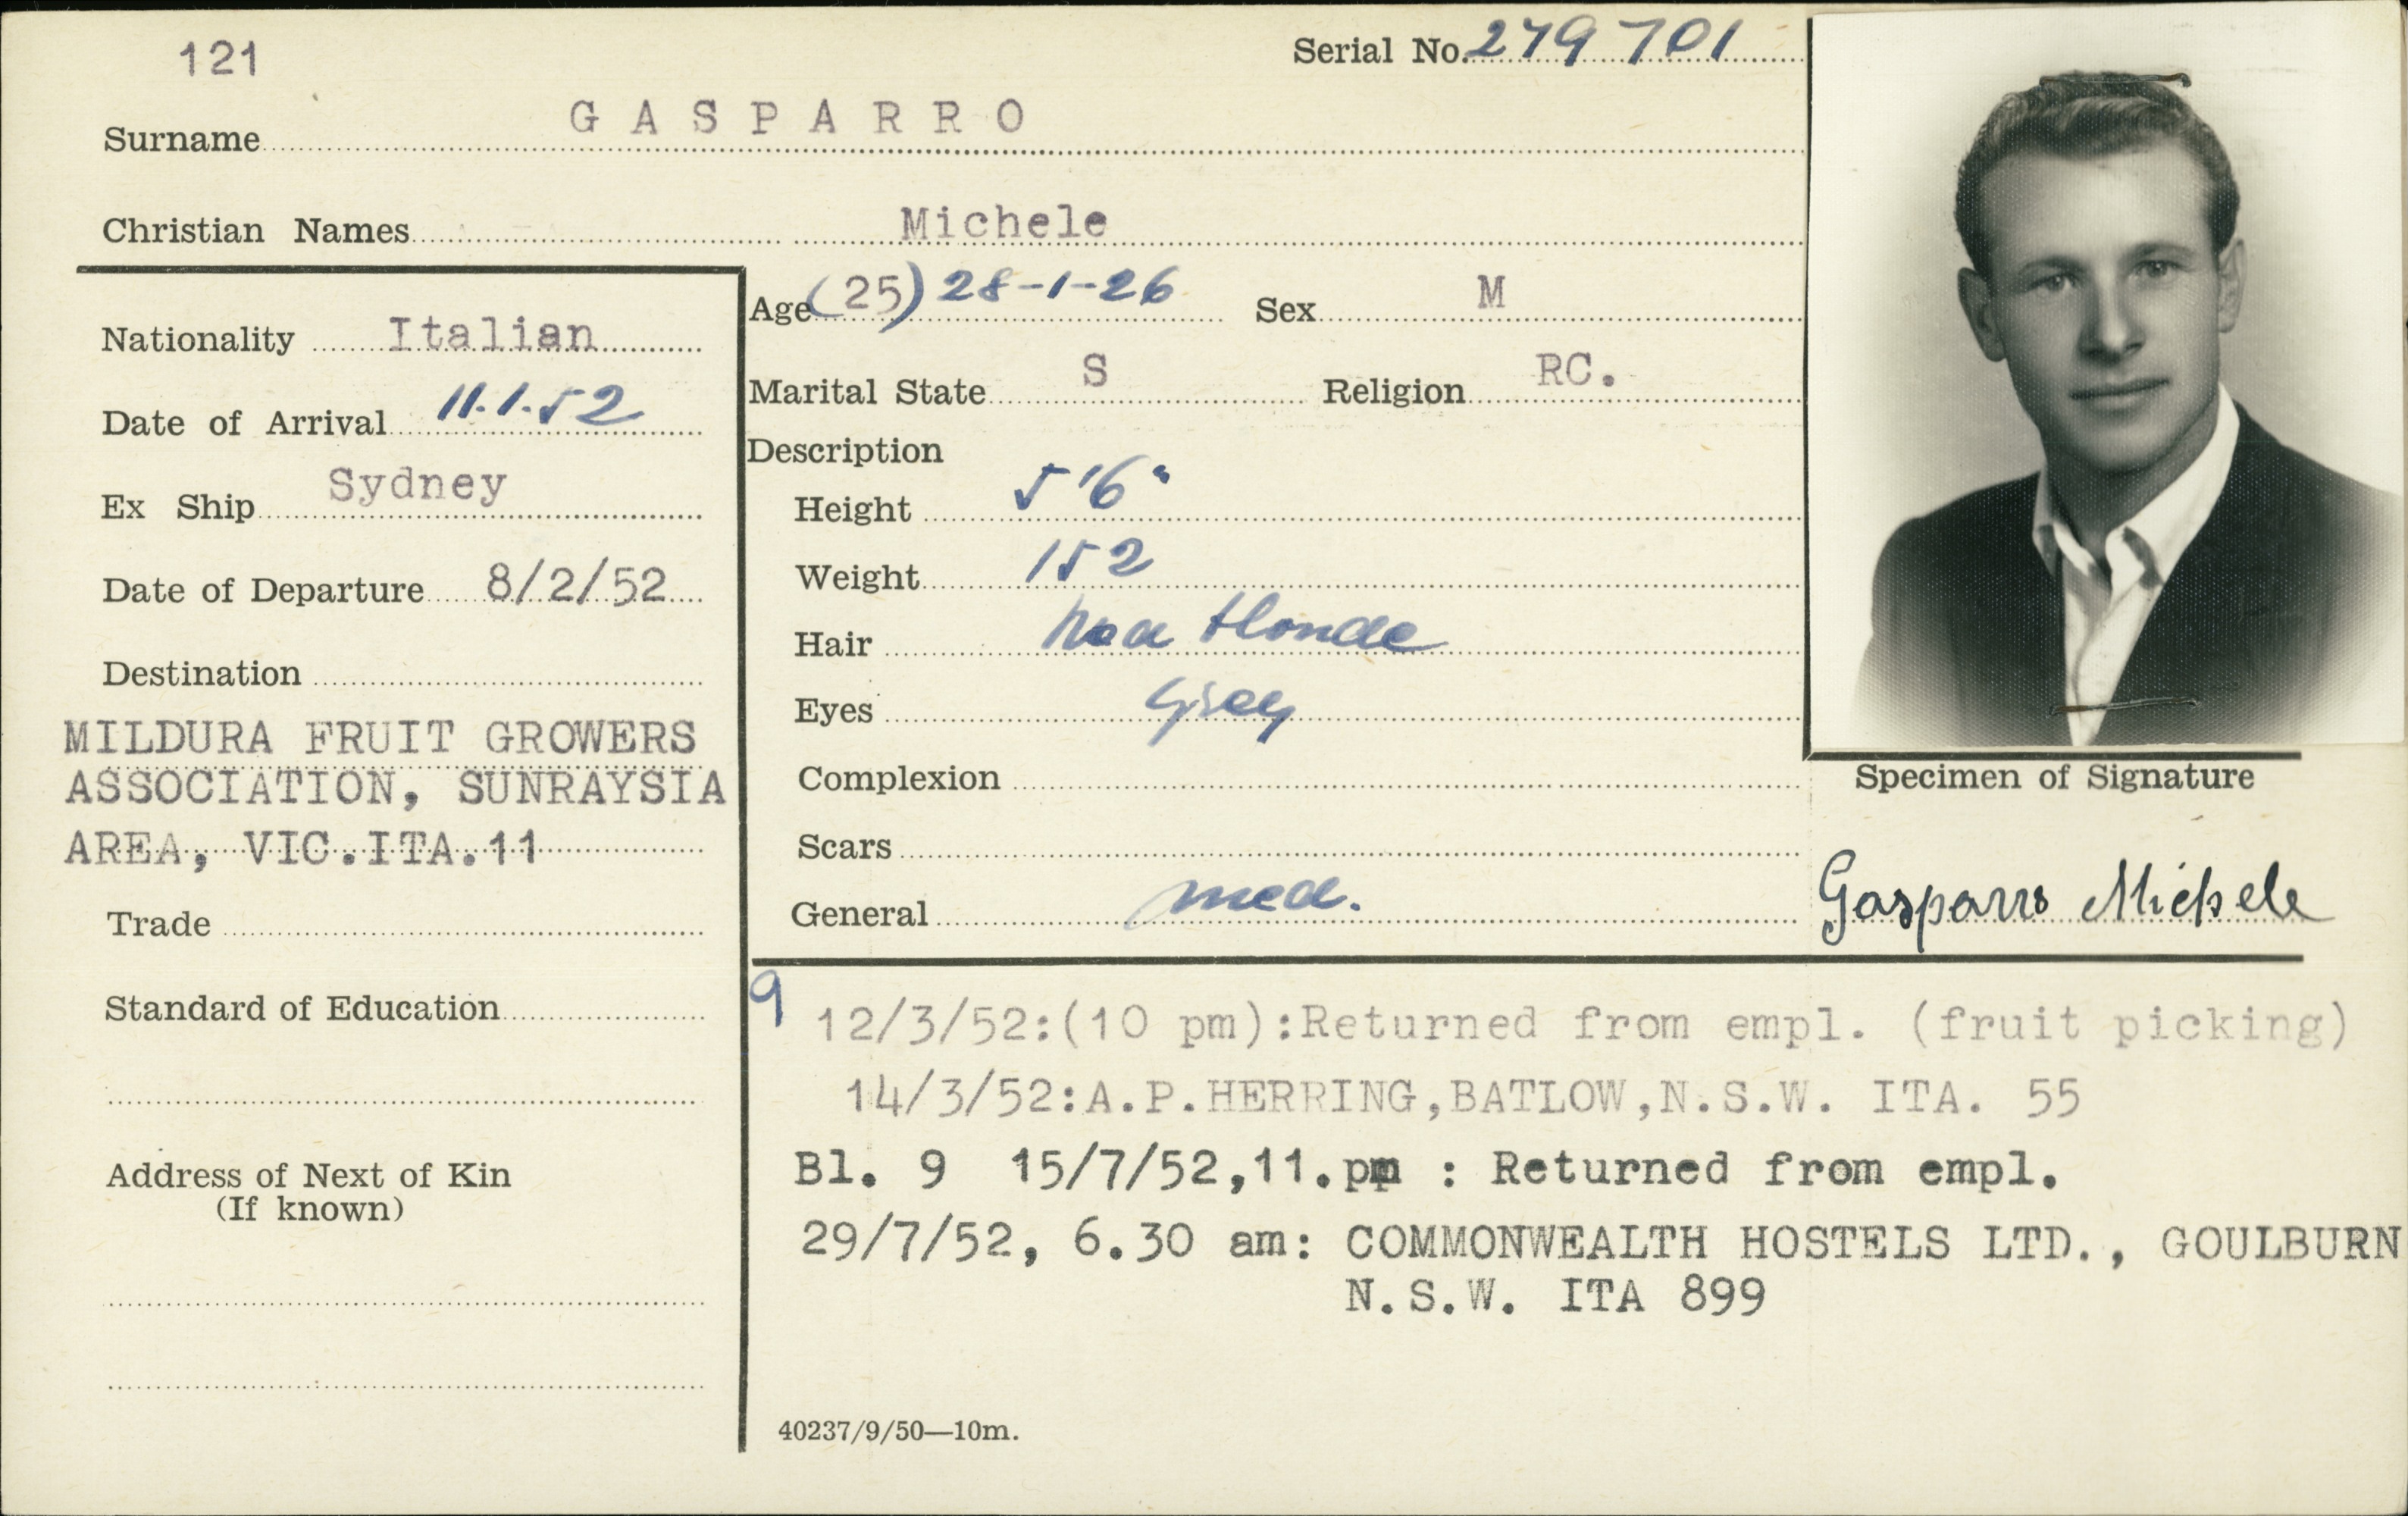 121
Serial No. 279 701
Surname GASPARRO
Christian Names Michele
Nationality Italian
Date of Arrival 11.1.52
Ex Ship Sydney
Date of Departure 8/2/52
Destination
MILDURA FRUIT GROWERS
ASSOCIATION, SUNRAYSIA
AREA, VIC.ITA.11
Trade
Standard of Education
Address of Next of Kin
(If known)
Age (25) 28-1-26 Sex M
Marital State S Religion RC.
Description
Height 5'6"
Weight 152
Hair blonde
Eyes Grey
Complexion
Scars
General med.
Specimen of Signature
Gasparro Michele
9
12/3/52:(10 pm):Returned from empl. (fruit picking)
14/3/52:A.P.HERRING,BATLOW,N.S.W. ITA. 55
Bl. 9 15/7/52,11.pm : Returned from empl.
29/7/52, 6.30 am: COMMONWEALTH HOSTELS LTD., GOULBURN
N.S.W. ITA 899
40237/9/50—10m.